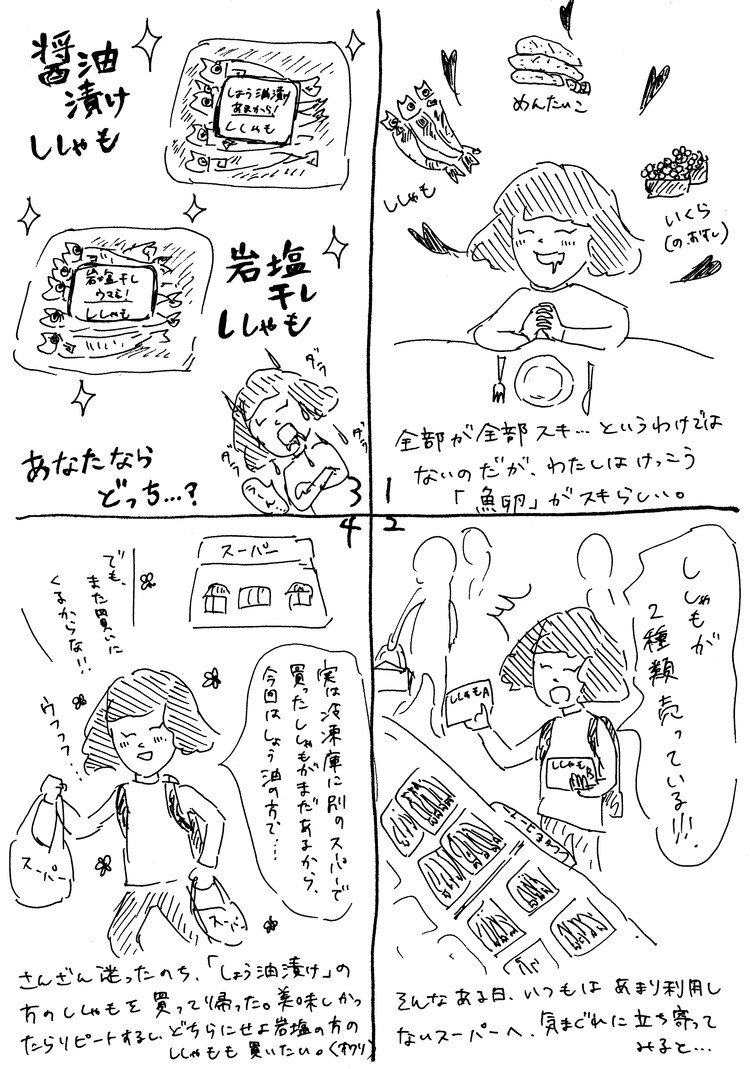 めんたいこ
ししゃも
いくら
(のおすし)
全部が全部スキ…というわけでは
ないのだが、わたしはけっこう
「魚卵」がスキらしい。
1
2
ししゃもが
2種類売っている!!!
ししゃもA
ししゃもB
そんなある日、いつもはあまり利用し
ないスーパーへ、気まぐれに立ち寄って
みると…
3
醤油
漬け
ししゃも
しょう油漬け
あまから!
ししゃも
岩塩干し
ウマミ!
ししゃも
岩塩
干し
ししゃも
ダラ
ダラ
ダラ
あなたなら
どっち…?
4
スーパー
でも、
また買いに
くるからな!!
ウフフフ…
実は冷凍庫に別のスーパーで
買ったししゃもがまだあるから、
今回はしょう油の方で…
スーパー
スーパー
さんざん迷ったのち、「しょう油漬け」の
方のししゃもを買って帰った。美味しかっ
たらリピートするし、どちらにせよ岩塩の方の
ししゃもも買いたい。(オワリ)